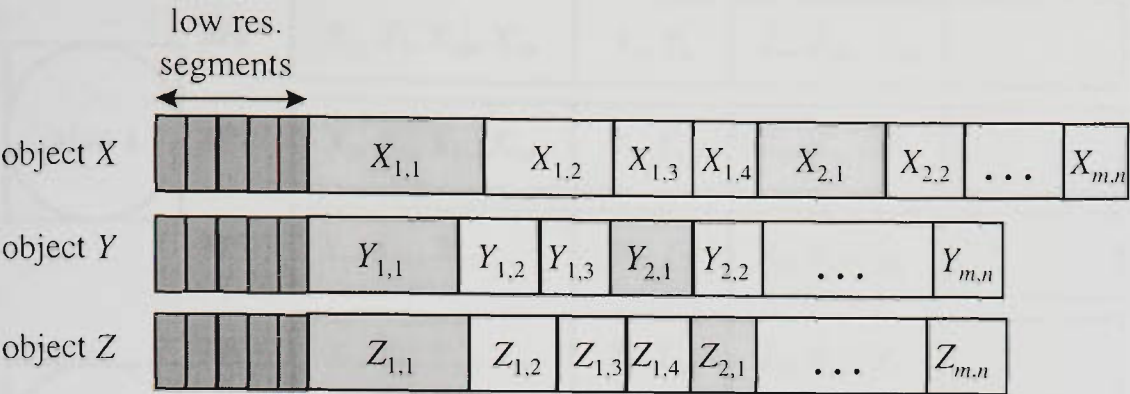 low res.
segments
object X X₁,₁ X₁,₂ X₁,₃ X₁,₄ X₂,₁ X₂,₂ ... Xm.n
object Y Y₁,₁ Y₁,₂ Y₁,₃ Y₂,₁ Y₂,₂ ... Ym,n
object Z Z₁,₁ Z₁,₂ Z₁,₃ Z₁,₄ Z₂,₁ ... Zm.n